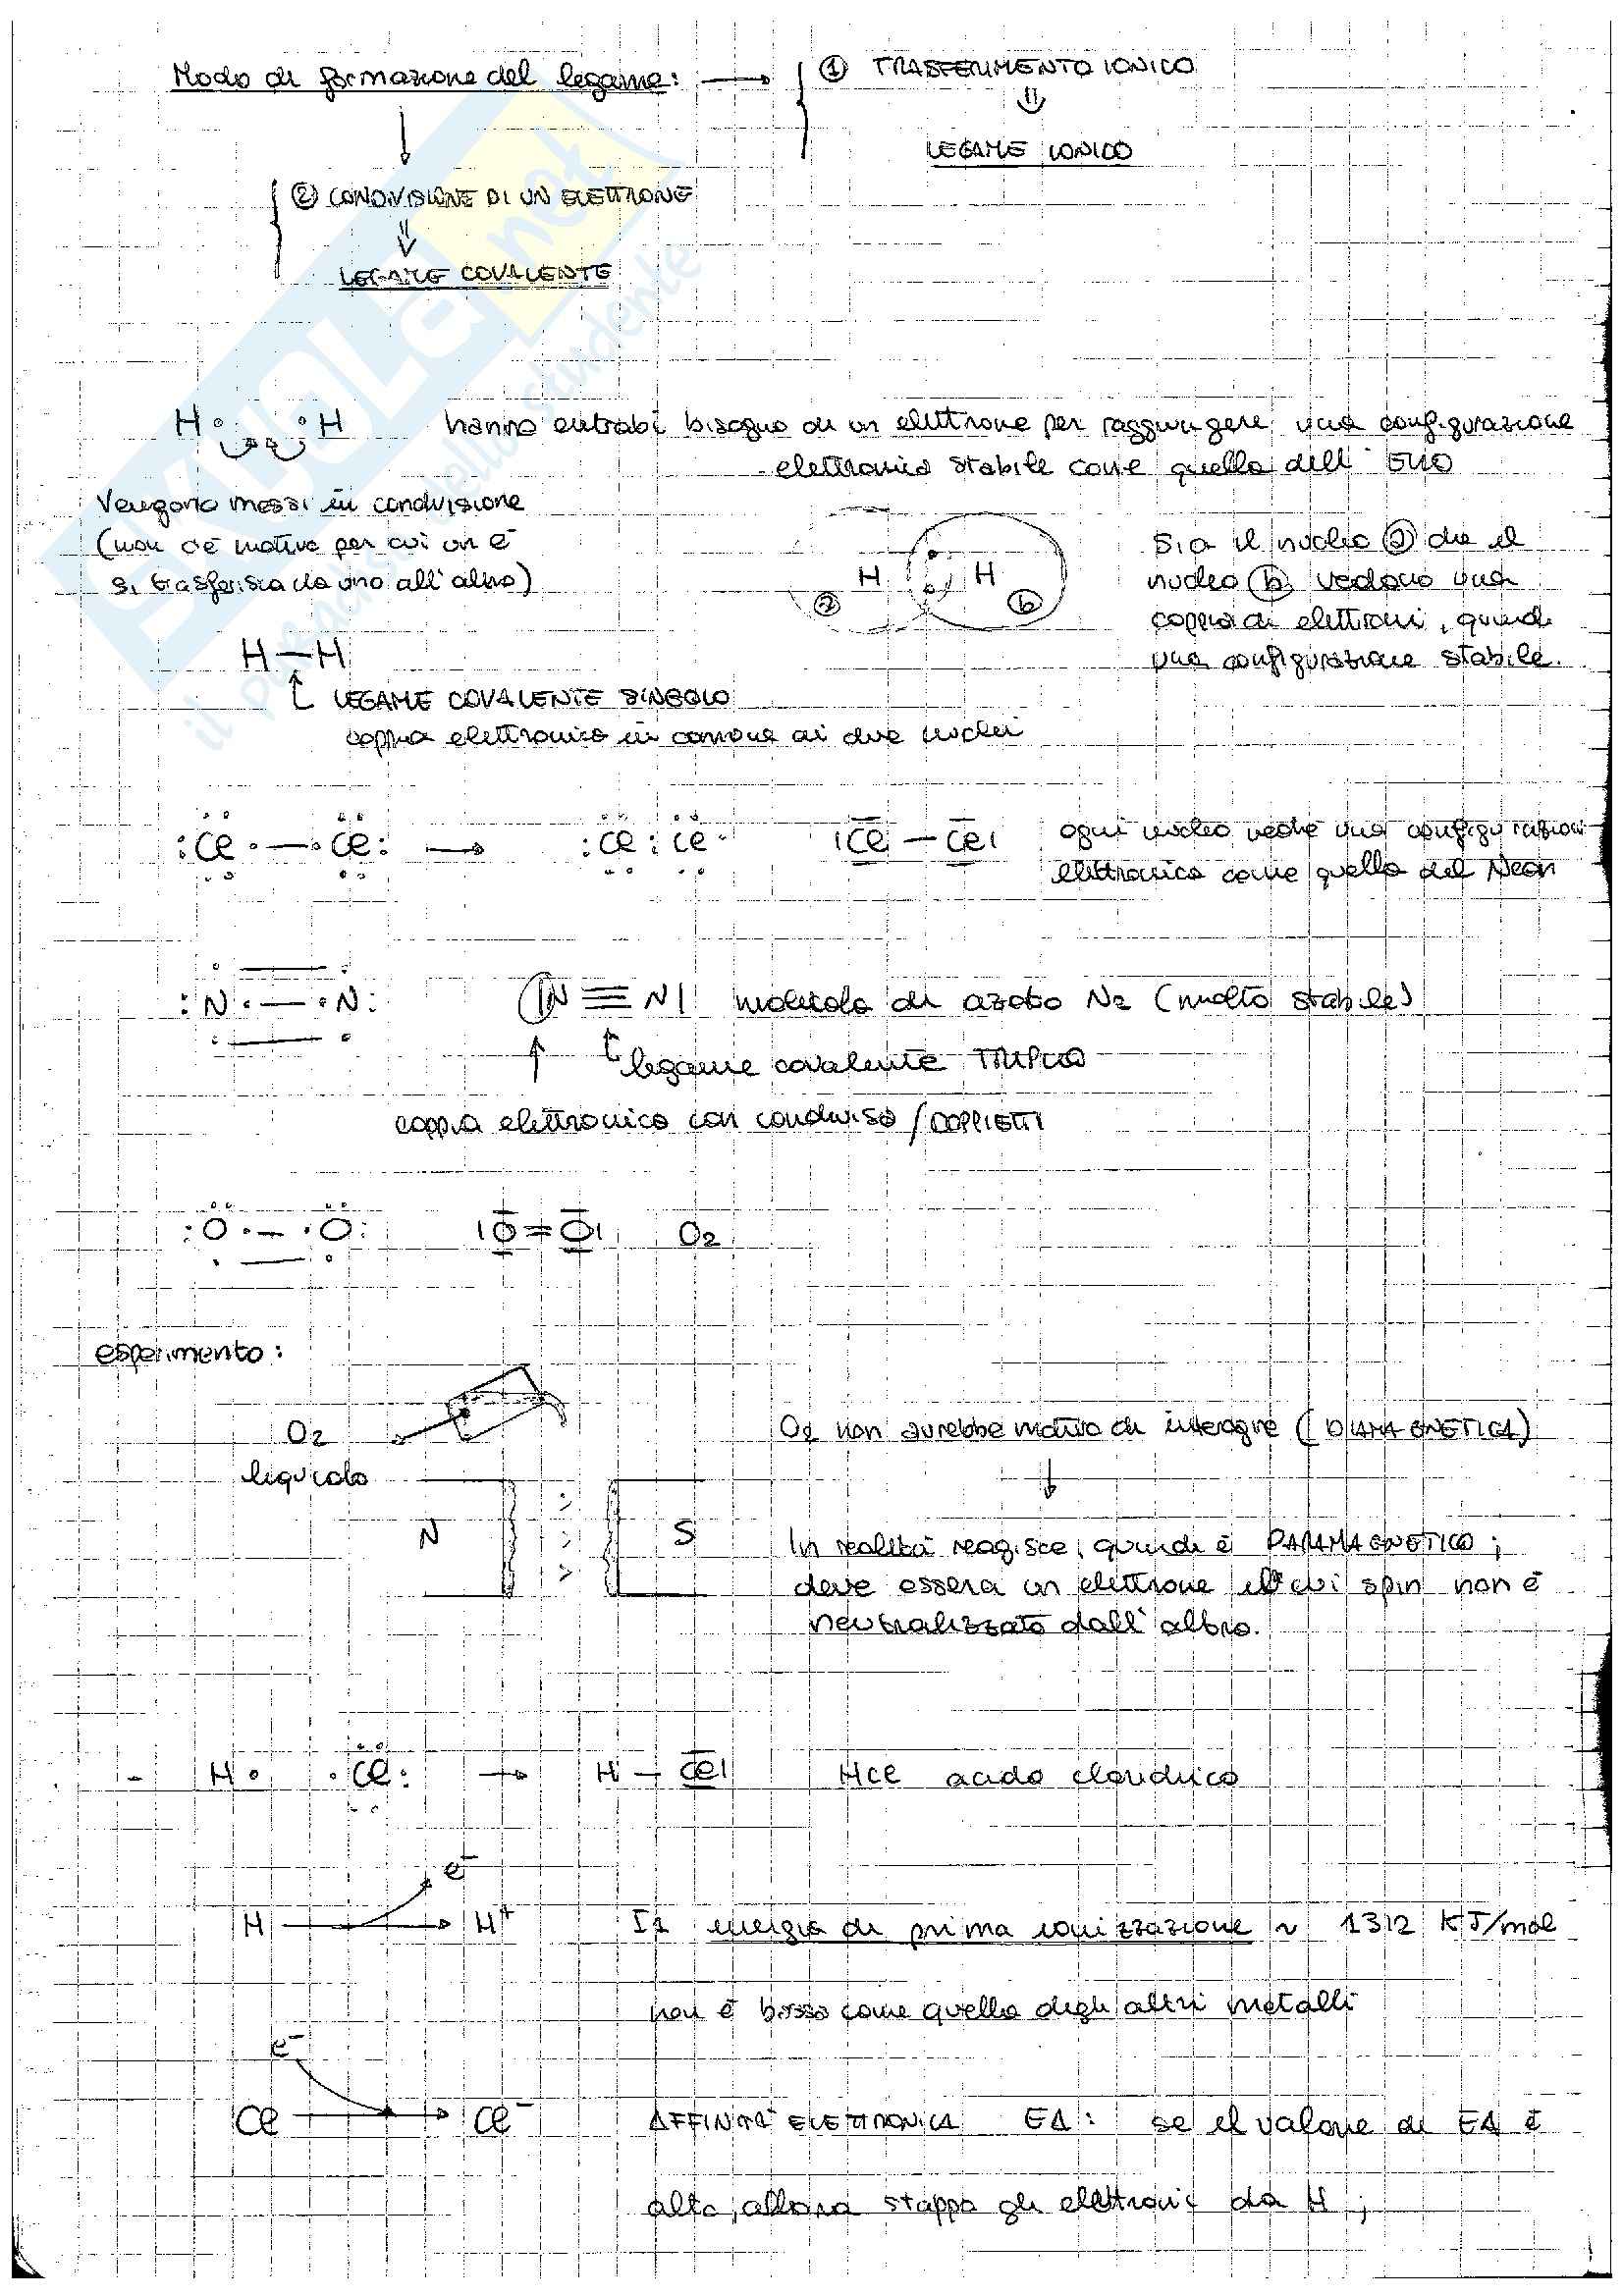 Modo di formazione del legame: → ① TRASFERIMENTO IONICO
⇓
LEGAME IONICO
② CONDIVISIONE DI UN ELETTRONE
⇓
LEGAME COVALENTE
H· ·H hanno entrabi bisogno di un elettrone per raggiungere una configurazione
elettronica stabile come quella dell' ELIO
Vengono messi in condivisione
(non c'è motivo per cui un e⁻
si trasferisca da uno all'altro)
H H
ⓐ ⓑ
Sia il nucleo ⓐ che il
nucleo ⓑ vedono una
coppia di elettroni, quindi
una configurazione stabile.
H—H
LEGAME COVALENTE SINGOLO
coppia elettronica in comune ai due nuclei
:Cl·—·Cl: → :Cl:Cl: |Cl—Cl| ogni nucleo vede una configurazione
elettronica come quella del Neon
:N·—·N: |N≡N| molecola di azoto N2 (molto stabile)
legame covalente TRIPLO
coppia elettronica non condivisa / DOPPIETTI
:O·—·O: |O=O| O2
esperimento:
O2
liquido
N S
O2 non avrebbe motivo di interagire (DIAMAGNETICA)
↓
In realtà reagisce, quindi è PARAMAGNETICO;
deve esserci un elettrone il cui spin non è
neutralizzato dall'altro.
- H· ·Cl: → H—Cl| HCl acido cloridrico
e⁻
H → H⁺ I1 energia di prima ionizzazione ~ 1312 KJ/mol
non è bassa come quella degli altri metalli
e⁻
Cl → Cl⁻ AFFINITÀ ELETTRONICA EA: se il valore di EA è
alto, allora strappa gli elettroni da H;